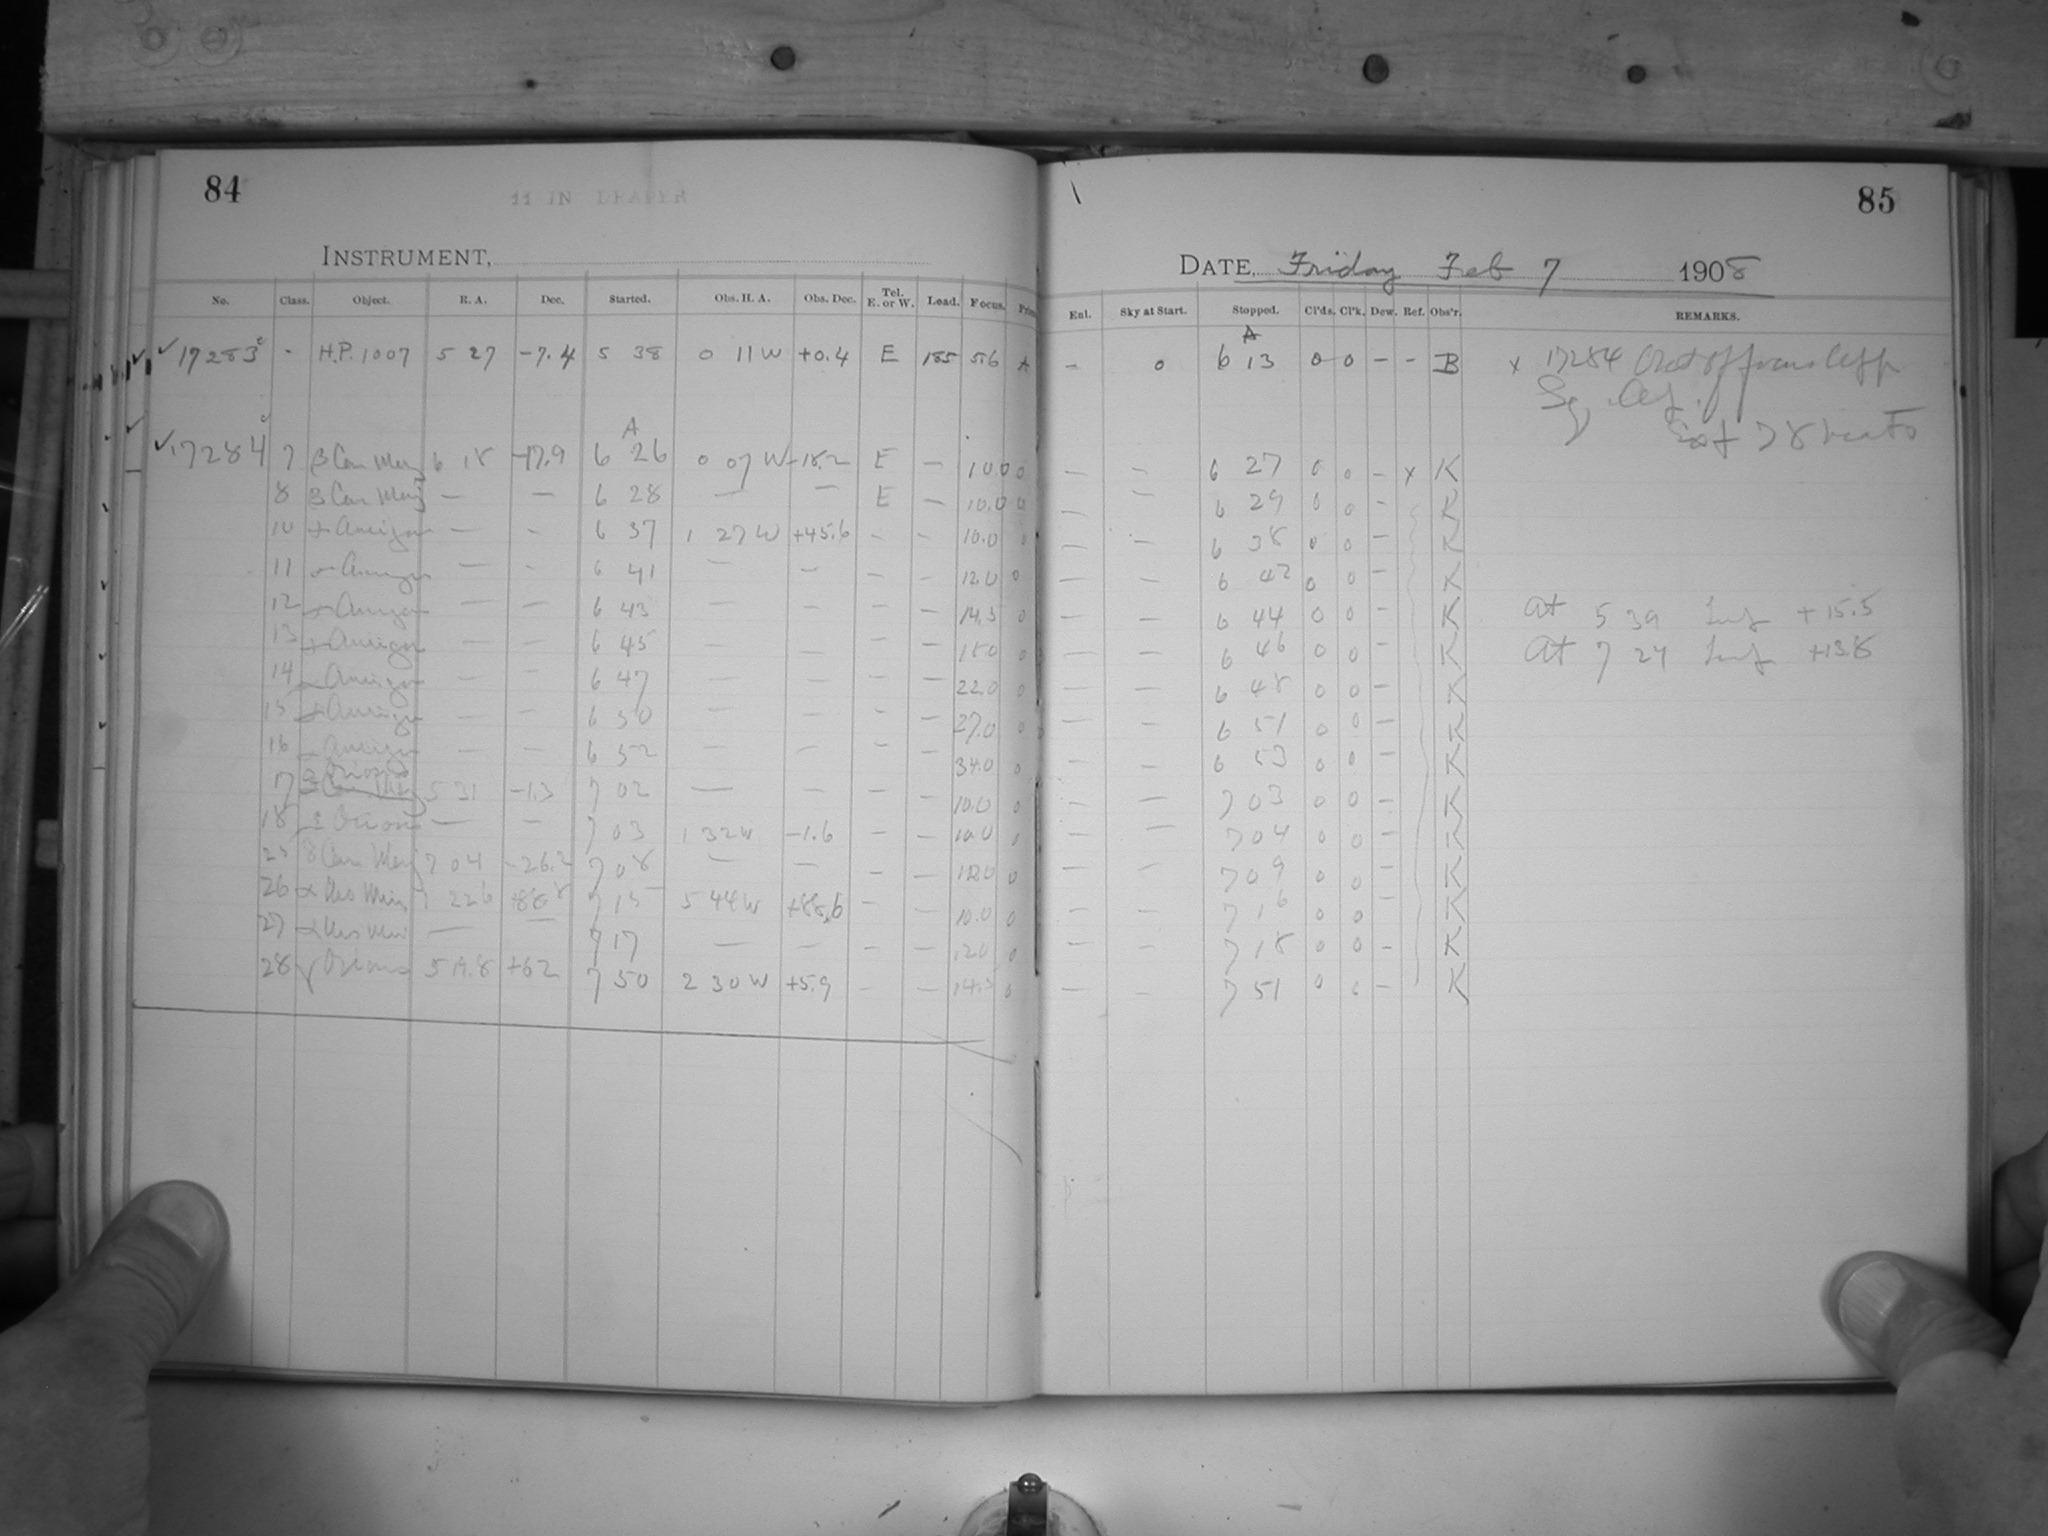 84
11 IN DRAPER
INSTRUMENT,
No. Class. Object. R. A. Dec. Started. Obs. H. A. Obs. Dec. Tel. E. or W. Load. Focus.
✓ 17283 - H.P. 1007 5 27 -7.4 5 38 0 11 W +0.4 E 185 5.6 A
A
✓ 17284 7 β Can Maj 6 18 -17.9 6 26 0 07 W -18.2 E — 10.0 0
8 β Can Maj — — 6 28 — — E — 10.0 0
10 Aurigae — — 6 37 1 27 W +45.6 - - 10.0 0
11 Aurigae — — 6 41 — — — — 12.0 0
12 Aurigae — — 6 43 — — — — 14.5 0
13 Aurigae — — 6 45 — — — — 18.0 0
14 Aurigae — — 6 47 — — — — 22.0 0
15 Aurigae — — 6 50 — — — — 27.0 0
16 Aurigae — — 6 52 — — — — 34.0 0
17 Orionis 5 31 -1.3 7 02 — — — — 10.0 0
18 Orionis — — 7 03 1 32 W -1.6 — — 10.0 0
δ Can Maj 7 04 -26.2 7 08 — — — — 10.0 0
26 α Urs Min 1 22.6 +88.8 7 15 5 44 W +88.6 — — 10.0 0
27 α Urs Min — 7 17 — — — — 12.0 0
28 γ Orionis 5 19.8 +6.2 7 50 2 30 W +5.9 — — 14.5 0
85
DATE, Friday Feb 7 1908
Enl. Sky at Start. Stopped. Cl'ds. Cl'k. Dew. Ref. Obs'r. REMARKS.
A
— 0 6 13 0 0 — - B x 17284 Out of focus
— — 6 27 0 0 - x K
— — 6 29 0 0 - K
— — 6 38 0 0 - K
— — 6 42 0 0 - K
— — 6 44 0 0 - K At 5 39 +15.5
— — 6 46 0 0 - K At 7 24 +13.8
— — 6 48 0 0 - K
— — 6 51 0 0 - K
— — 6 53 0 0 K
— — 7 03 0 0 - K
— — 7 04 0 0 - K
— — 7 09 0 0 - K
— — 7 16 0 0 - K
— — 7 18 0 0 - K
— — 7 51 0 0 - K